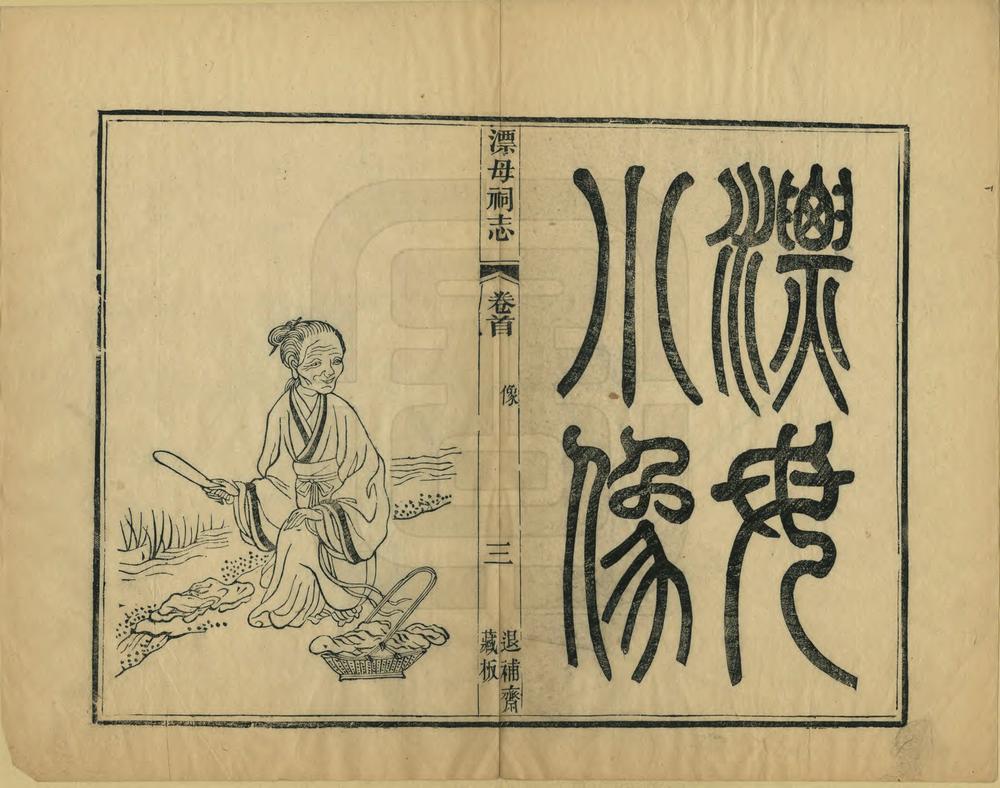 漂母
小像
漂母祠志
卷首
像
三
退補齋
藏板